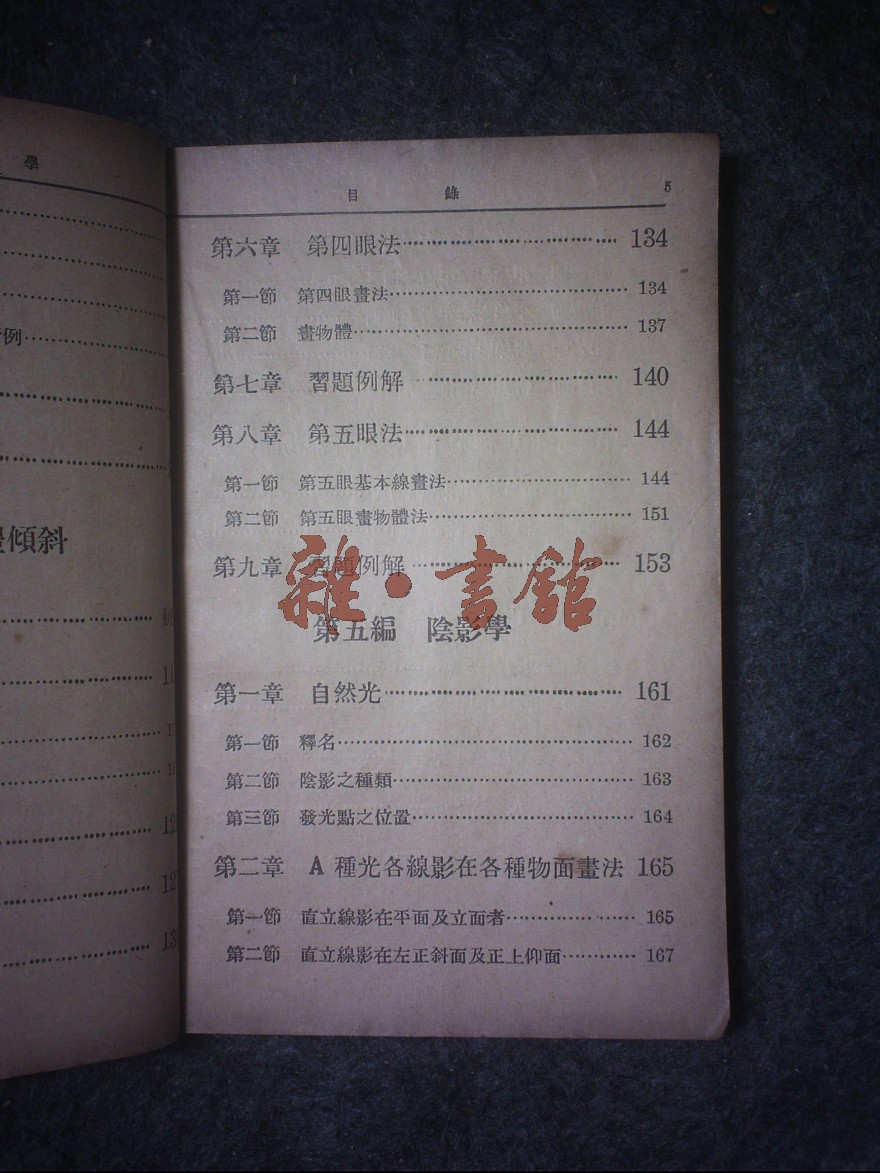 學
例
傾斜
目 錄 5
第六章 第四眼法 134
第一節 第四眼畫法 134
第二節 畫物體 137
第七章 習題例解 140
第八章 第五眼法 144
第一節 第五眼基本線畫法 144
第二節 第五眼畫物體法 151
第九章 習題例解 153
雜·書館
第五編 陰影學
第一章 自然光 161
第一節 釋名 162
第二節 陰影之種類 163
第三節 發光點之位置 164
第二章 A 種光各線影在各種物面畫法 165
第一節 直立線影在平面及立面者 165
第二節 直立線影在左正斜面及正上仰面 167